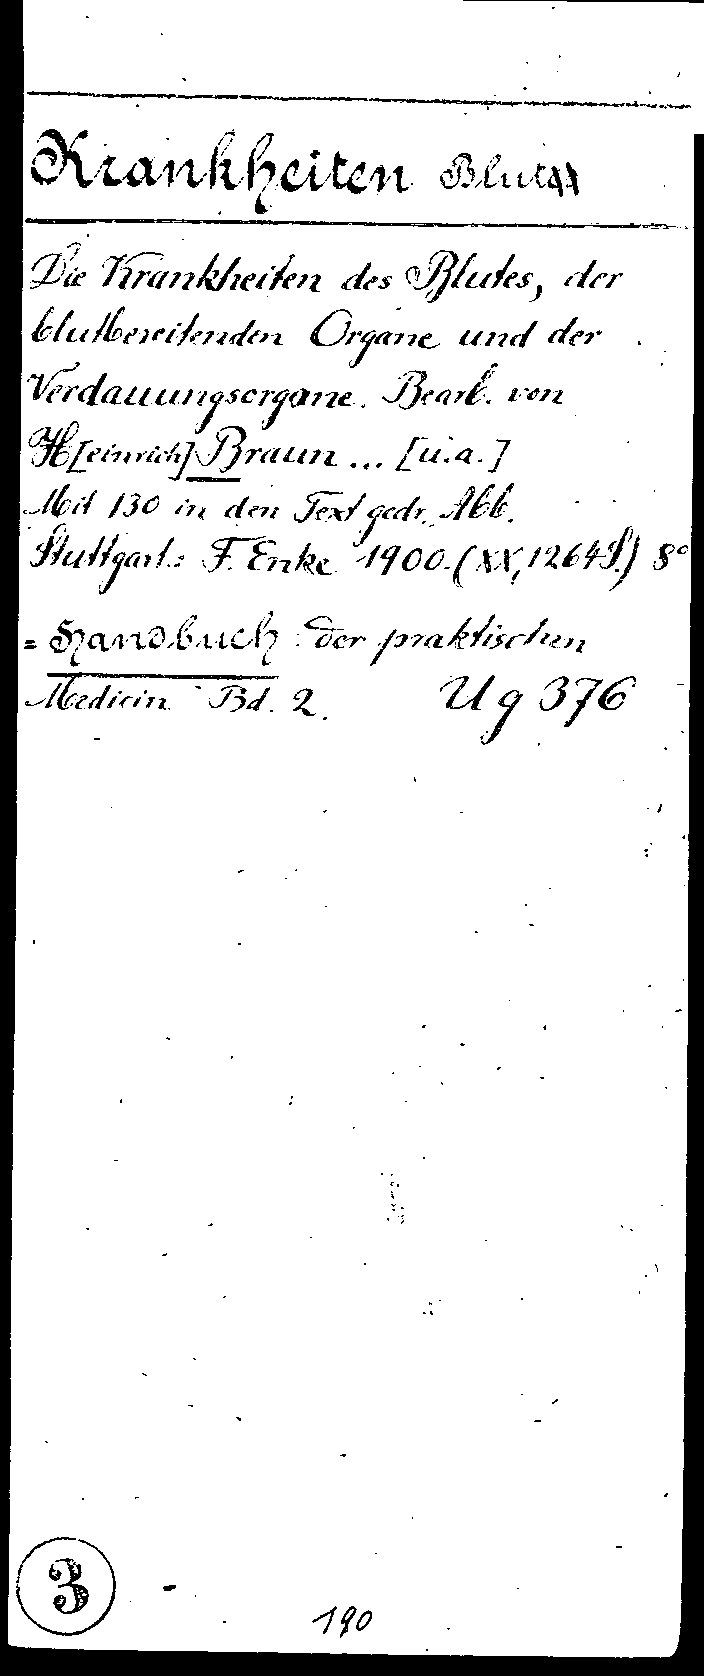 Krankheiten Blut
Die Krankheiten des Blutes, der
blutbereitenden Organe und der
Verdauungsorgane. Bearb. von
H[einrich] Braun ... [u.a.]
Mit 130 in den Text gedr. Abb.
Stuttgart: F. Enke 1900. (XX, 1264 S.) 8°
= Handbuch der praktischen
Medicin Bd. 2. Ug 376
3
190